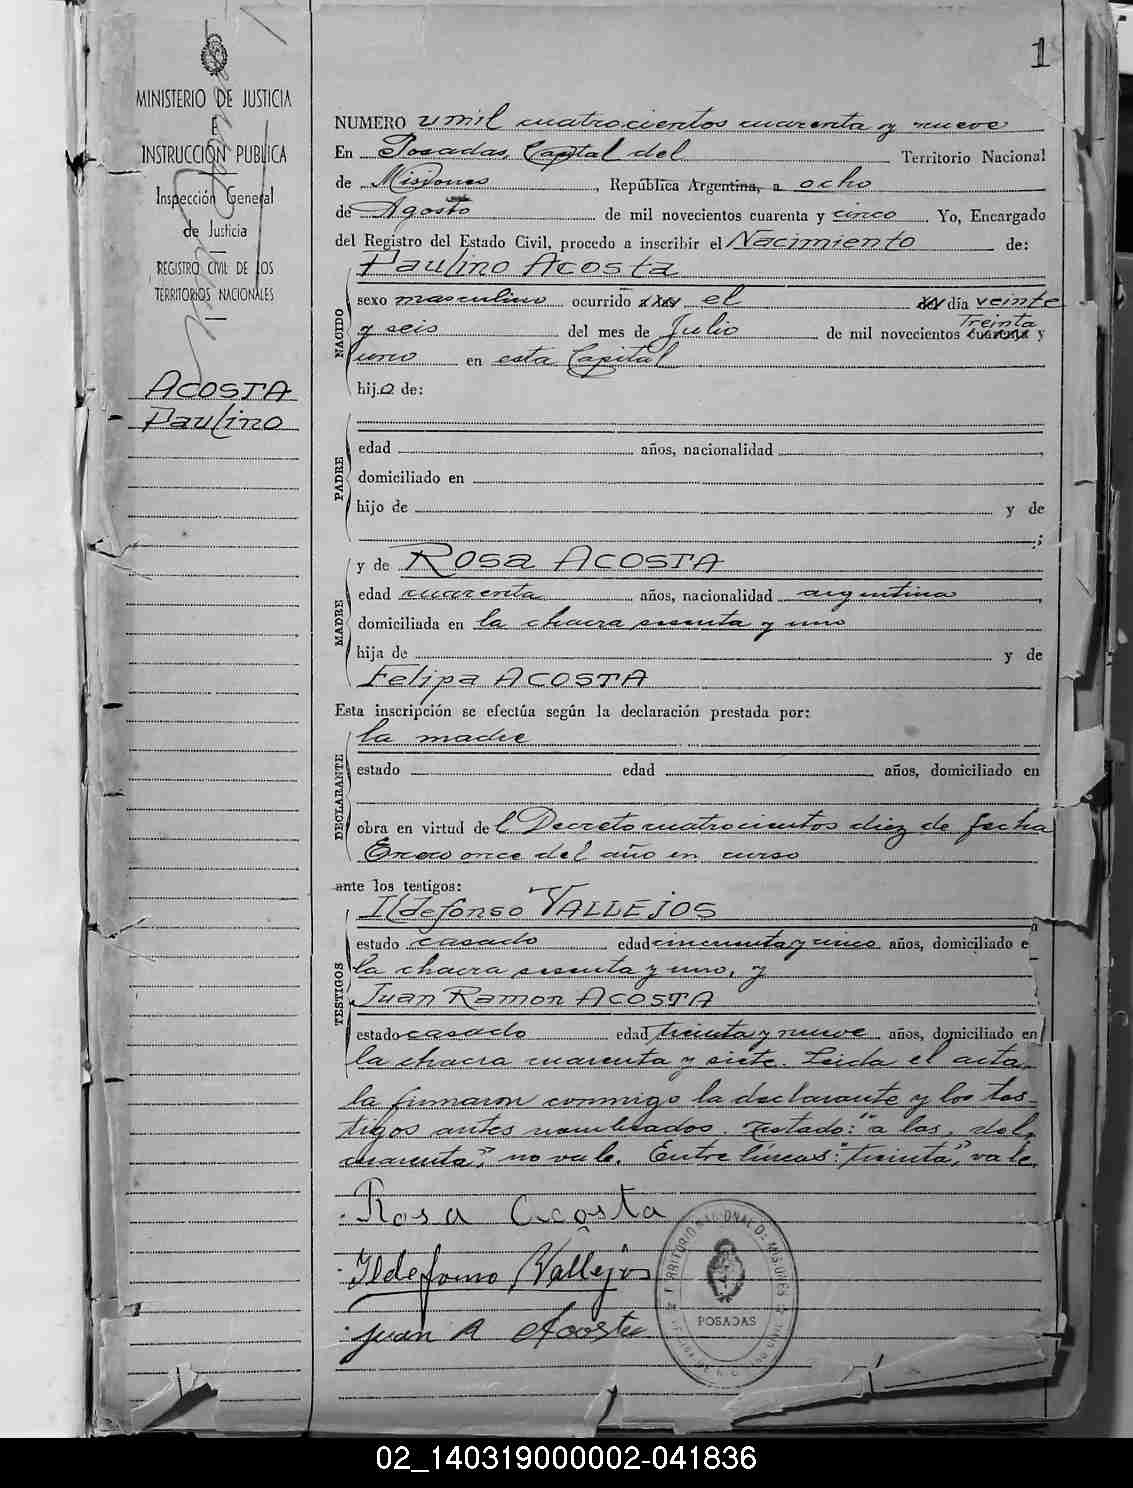 1
MINISTERIO DE JUSTICIA
E
INSTRUCCIÓN PUBLICA
Inspección General
de Justicia
REGISTRO CIVIL DE LOS
TERRITORIOS NACIONALES
ACOSTA
Paulino
NUMERO mil cuatrocientos cuarenta y nueve
En Posadas, Capital del Territorio Nacional
de Misiones, República Argentina, a ocho
de Agosto de mil novecientos cuarenta y cinco. Yo, Encargado
del Registro del Estado Civil, procedo a inscribir el Nacimiento de:
Paulino Acosta
NACIDO
sexo masculino ocurrido el día veinte
y seis del mes de Julio de mil novecientos Treinta cuarenta y
uno en esta Capital
hijo de:
PADRE
edad años, nacionalidad ,
domiciliado en
hijo de y de
;
MADRE
y de Rosa ACOSTA
edad cuarenta años, nacionalidad argentina,
domiciliada en la chacra sesenta y uno
hija de y de
Felipa ACOSTA
Esta inscripción se efectúa según la declaración prestada por:
DECLARANTE
la madre
estado edad años, domiciliado en
obra en virtud del Decreto cuatrocientos diez de fecha
Enero once del año en curso
ante los testigos:
TESTIGOS
Ildefonso VALLEJOS
estado casado edad cincuenta y cinco años, domiciliado e
la chacra sesenta y uno, y
Juan Ramon ACOSTA
estado casado edad treinta y nueve años, domiciliado en
la chacra cuarenta y siete. Leida el acta,
la firmaron conmigo la declarante y los tes-
tigos antes nombrados. Testado: "a las, del,
cuarenta", no vale. Entre líneas: "treinta", vale.
Rosa Acosta
Ildefonso Vallejos
Juan R Acosta
TERRITORIO NACIONAL DE MISIONES
POSADAS
02_140319000002-041836